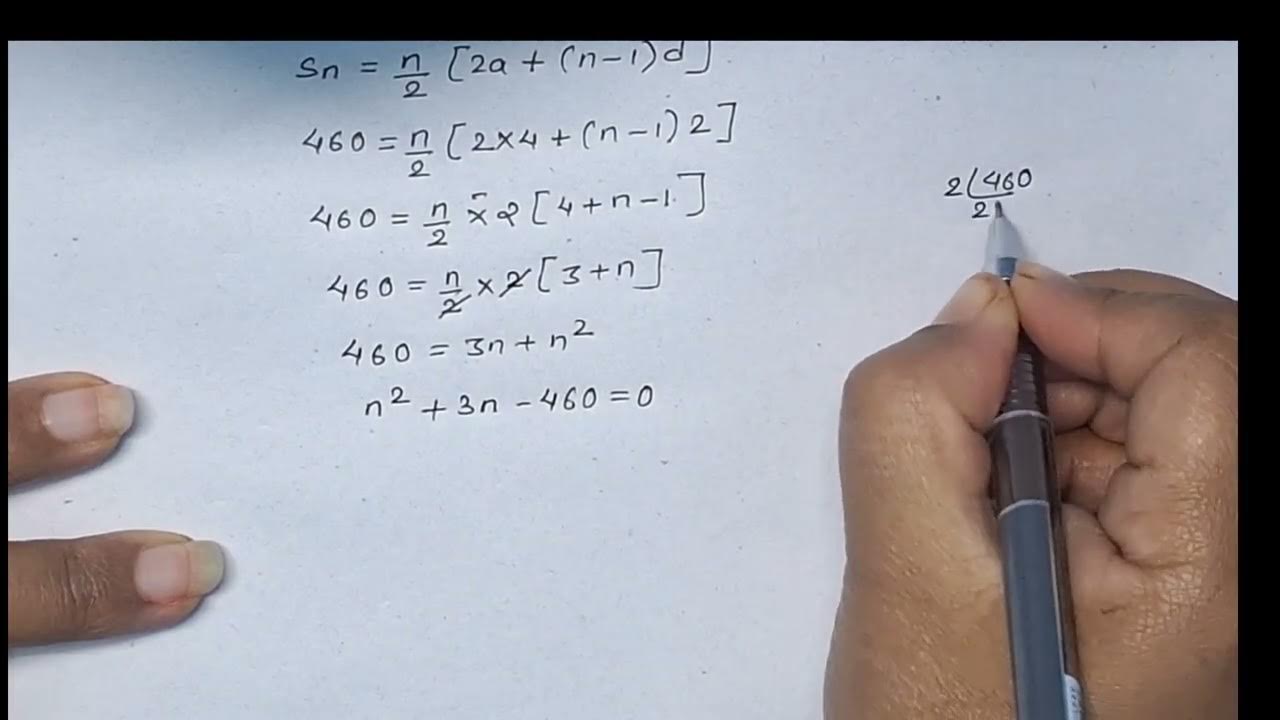 Sn = n/2 [2a + (n-1)d]
460 = n/2 [2×4 + (n-1)2]
460 = n/2 × 2 [4+n-1]
460 = n/2 × 2 [3+n]
460 = 3n + n²
n² + 3n - 460 = 0
2(460
2